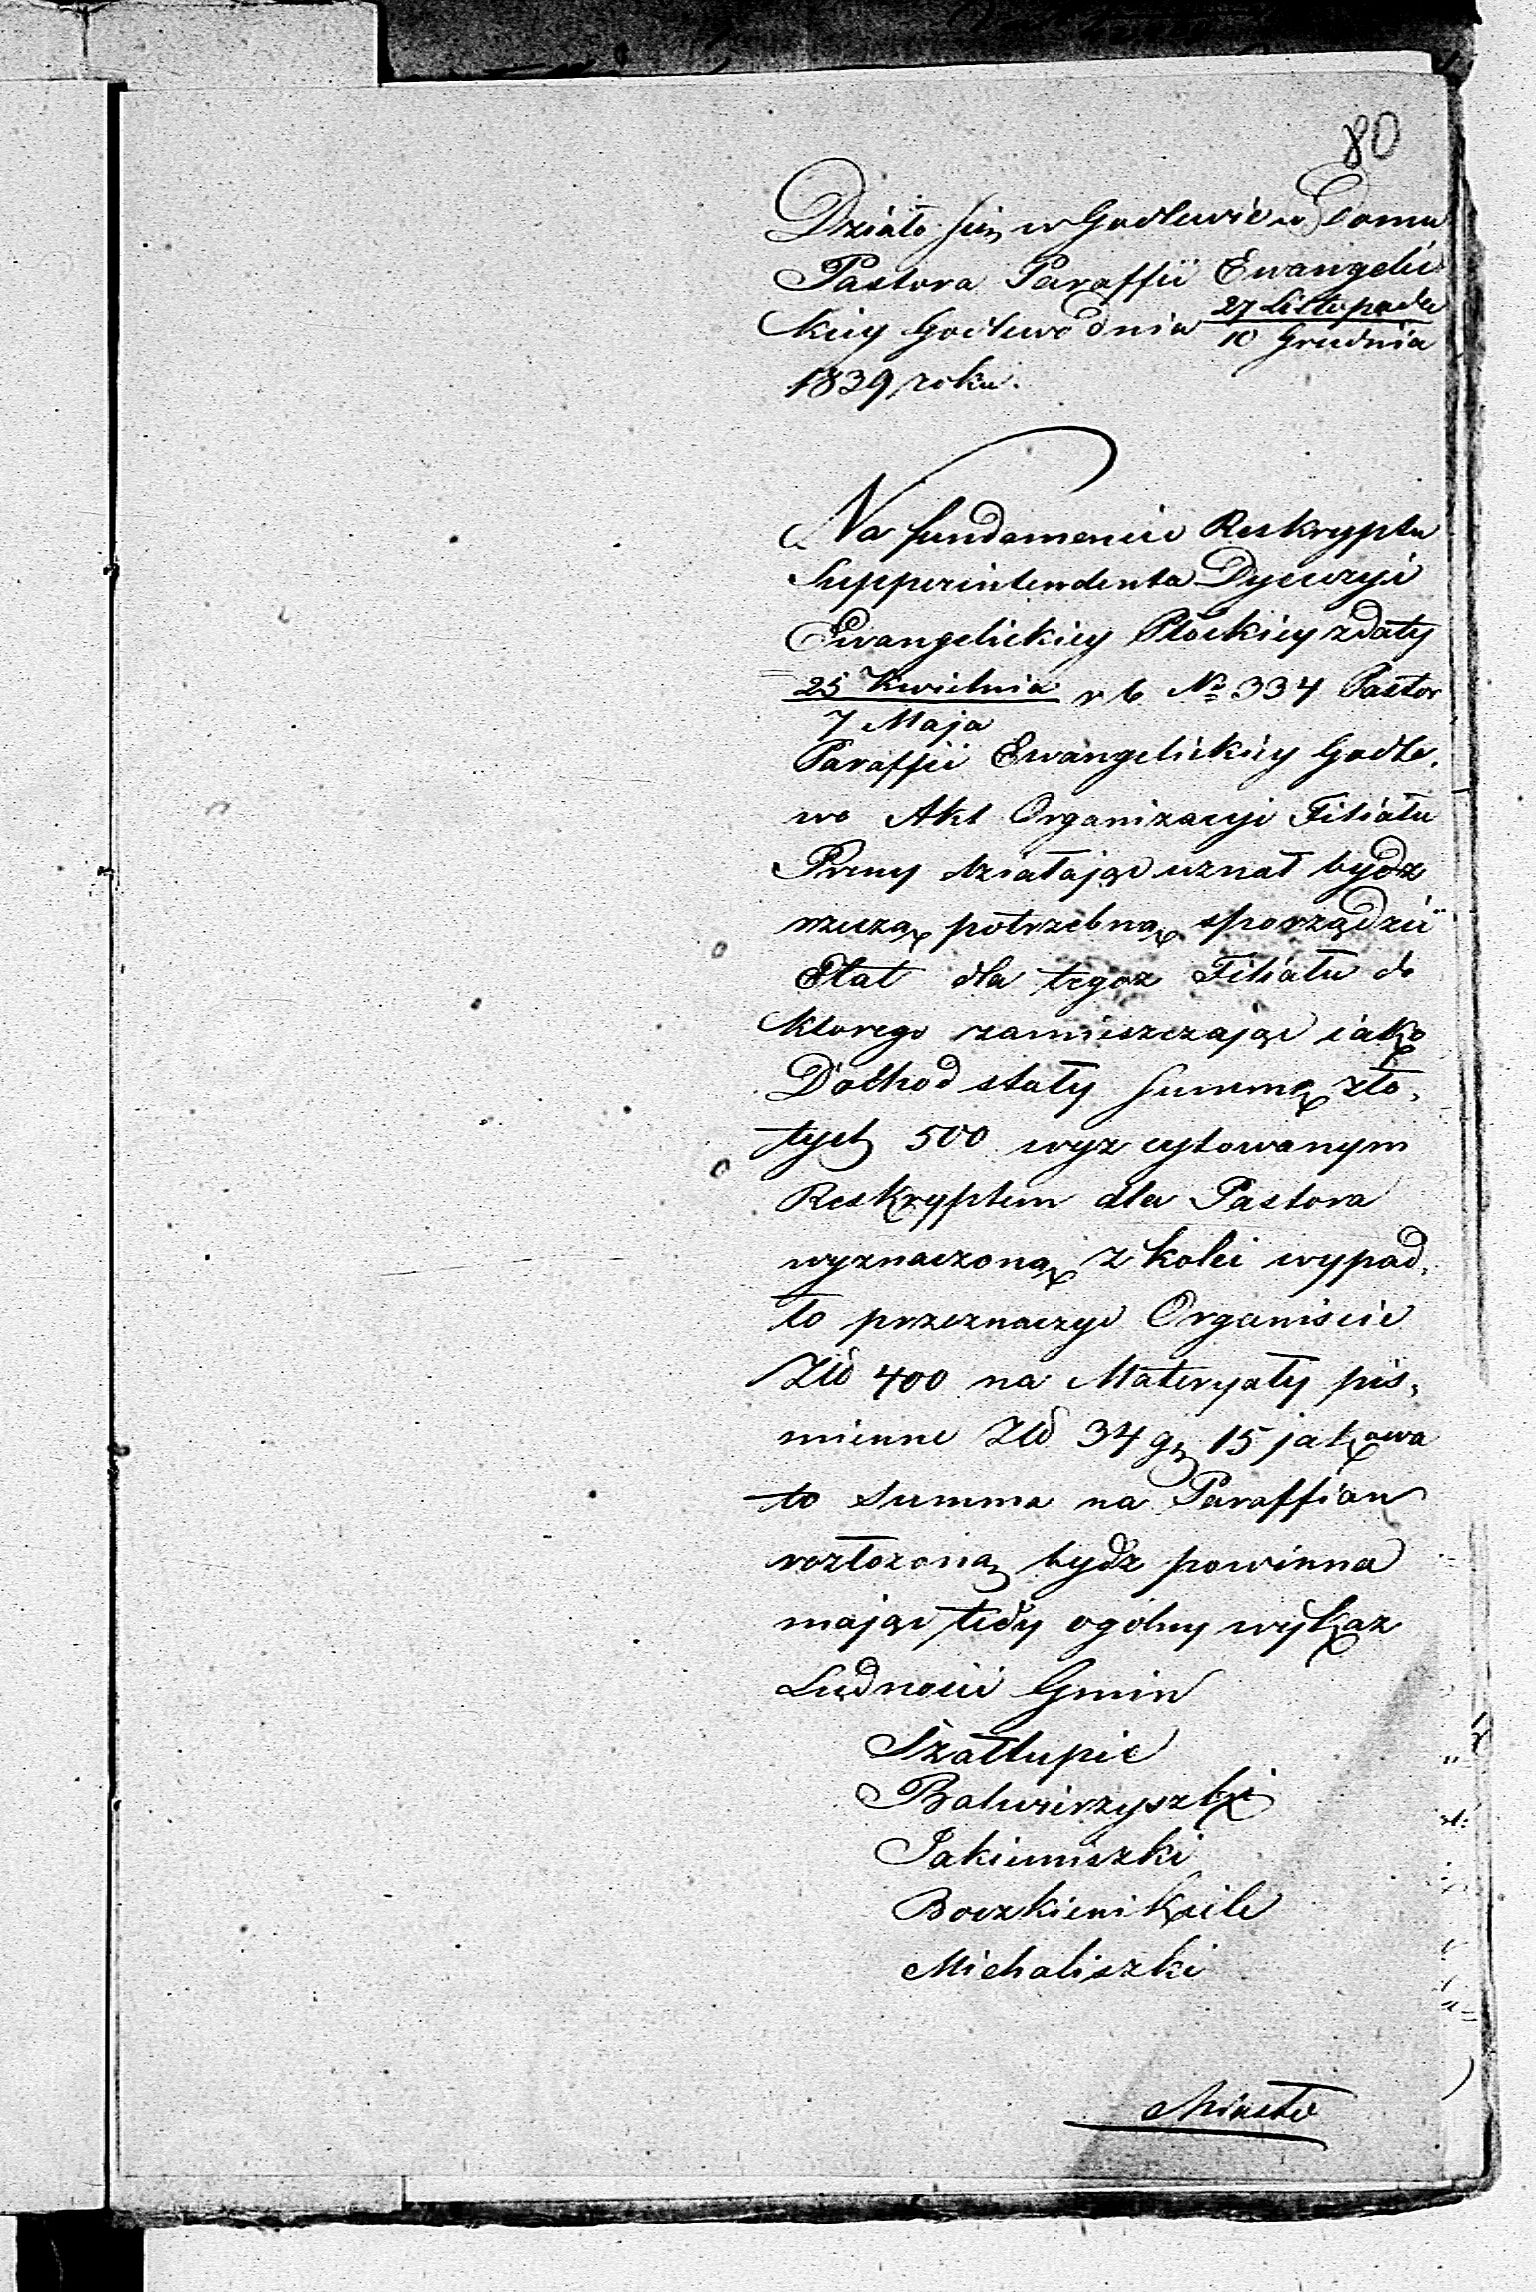 80
Działo się w Godlewie w Domu
Pastora Paraffii Ewangelic
kiey Godlewo dnia 27 Listopada
10 Grudnia
1839 roku.
Na fundamencie Reskryptu
Supperintendenta Dyecezyi
Ewangelickiey Płockiey z daty
25 Kwietnia r b № 334 Pastor
7 Maja
Paraffii Ewangelickiey Godle,
wo Akt Organizacyi Filiału
Preny działając uznał bydz
rzeczą potrzebną sporządzić
Etat dla tegoz Filiału do
ktorego zamieszczając iako
Dochod stały summę zło,
tych 500 wyz cytowanym
Reskryptem dla Pastora
wyznaczoną z kolei wypad,
ło przeznaczyc Organiscie
Złł 400 na Materyały pis,
mienne Złł 34 gr 15 jakowa
to summa na Paraffian
rozłozoną bydz powinna
mając tedy ogolny wykaz
Ludności Gmin
Szałtupie
Balwierzyszki
Jakimiszki
Boczkieni Kiele
Michaliszki
Miasto